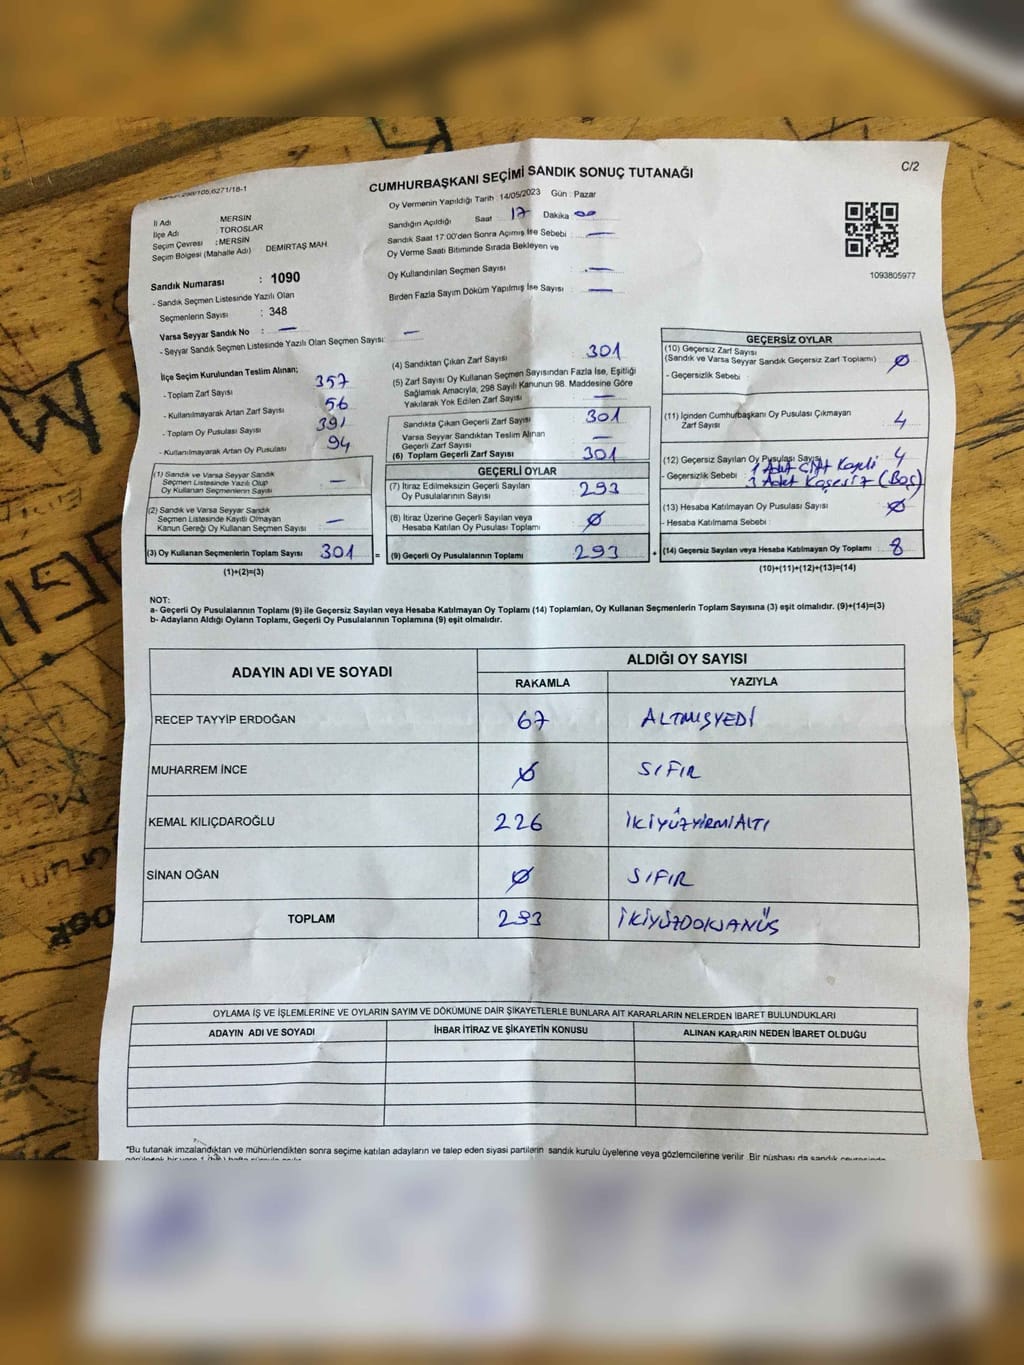 CUMHURBAŞKANI SEÇİMİ SANDIK SONUÇ TUTANAĞI
C/2
Oy Vermenin Yapıldığı Tarih : 14/05/2023 Gün : Pazar
Sandığın Açıldığı Saat 17 Dakika 00
Sandık Saat 17:00'den Sonra Açmış İse Sebebi : —
Oy Verme Saati Bitiminde Sırada Bekleyen ve
Oy Kullandırılan Seçmen Sayısı : —
Birden Fazla Sayım Döküm Yapılmış İse Sayısı : —
1093805977
İl Adı MERSİN
İlçe Adı TOROSLAR
Seçim Çevresi : MERSİN
Seçim Bölgesi (Mahalle Adı) DEMİRTAŞ MAH
Sandık Numarası : 1090
- Sandık Seçmen Listesinde Yazılı Olan
Seçmenlerin Sayısı : 348
Varsa Seyyar Sandık No : —
- Seyyar Sandık Seçmen Listesinde Yazılı Olan Seçmen Sayısı: —
İlçe Seçim Kurulundan Teslim Alınan;
- Toplam Zarf Sayısı 357
- Kullanılmayarak Artan Zarf Sayısı 56
- Toplam Oy Pusulası Sayısı 391
- Kullanılmayarak Artan Oy Pusulası 94
(1) Sandık ve Varsa Seyyar Sandık
Seçmen Listesinde Yazılı Olup
Oy Kullanan Seçmenlerin Sayısı —
(2) Sandık ve Varsa Seyyar Sandık
Seçmen Listesinde Kayıtlı Olmayan
Kanun Gereği Oy Kullanan Seçmen Sayısı —
(3) Oy Kullanan Seçmenlerin Toplam Sayısı 301 =
(1)+(2)=(3)
(4) Sandıktan Çıkan Zarf Sayısı 301
(5) Zarf Sayısı Oy Kullanan Seçmen Sayısından Fazla İse, Eşitliği
Sağlamak Amacıyla, 298 Sayılı Kanunun 98. Maddesine Göre
Yakılarak Yok Edilen Zarf Sayısı —
Sandıkta Çıkan Geçerli Zarf Sayısı 301
Varsa Seyyar Sandıktan Teslim Alınan
Geçerli Zarf Sayısı —
(6) Toplam Geçerli Zarf Sayısı 301
GEÇERLİ OYLAR
(7) İtiraz Edilmeksizin Geçerli Sayılan
Oy Pusulalarının Sayısı 293
(8) İtiraz Üzerine Geçerli Sayılan veya
Hesaba Katılan Oy Pusulası Toplamı Ø
(9) Geçerli Oy Pusulalarının Toplamı 293 +
GEÇERSİZ OYLAR
(10) Geçersiz Zarf Sayısı
(Sandık ve Varsa Seyyar Sandık Geçersiz Zarf Toplamı) Ø
- Geçersizlik Sebebi
(11) İçinden Cumhurbaşkanı Oy Pusulası Çıkmayan
Zarf Sayısı 4
(12) Geçersiz Sayılan Oy Pusulası Sayısı 4
- Geçersizlik Sebebi 1 Adet Çift Kaşeli
3 Adet Kaşesiz (Boş)
(13) Hesaba Katılmayan Oy Pusulası Sayısı Ø
- Hesaba Katılmama Sebebi
(14) Geçersiz Sayılan veya Hesaba Katılmayan Oy Toplamı 8
(10)+(11)+(12)+(13)=(14)
NOT:
a- Geçerli Oy Pusulalarının Toplamı (9) ile Geçersiz Sayılan veya Hesaba Katılmayan Oy Toplamı (14) Toplamları, Oy Kullanan Seçmenlerin Toplam Sayısına (3) eşit olmalıdır. (9)+(14)=(3)
b- Adayların Aldığı Oyların Toplamı, Geçerli Oy Pusulalarının Toplamına (9) eşit olmalıdır.
ADAYIN ADI VE SOYADI ALDIĞI OY SAYISI
RAKAMLA YAZIYLA
RECEP TAYYİP ERDOĞAN 67 ALTMIŞYEDİ
MUHARREM İNCE Ø SIFIR
KEMAL KILIÇDAROĞLU 226 İKİYÜZYİRMİALTI
SİNAN OĞAN Ø SIFIR
TOPLAM 293 İKİYÜZDOKSANÜŞ
OYLAMA İŞ VE İŞLEMLERİNE VE OYLARIN SAYIM VE DÖKÜMÜNE DAİR ŞİKAYETLERLE BUNLARA AİT KARARLARIN NELERDEN İBARET BULUNDUKLARI
ADAYIN ADI VE SOYADI İHBAR İTİRAZ VE ŞİKAYETİN KONUSU ALINAN KARARIN NEDEN İBARET OLDUĞU
*Bu tutanak imzalandıktan ve mühürlendikten sonra seçime katılan adayların ve talep eden siyasi partilerin sandık kurulu üyelerine veya gözlemcilerine verilir. Bir nüshası da sandık çevresinde